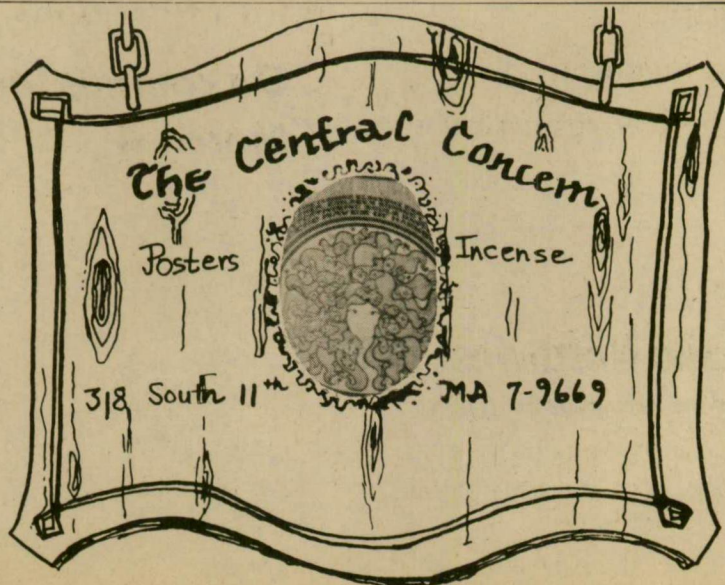 The Central Concern
Posters
Incense
318 South 11th
MA 7-9669